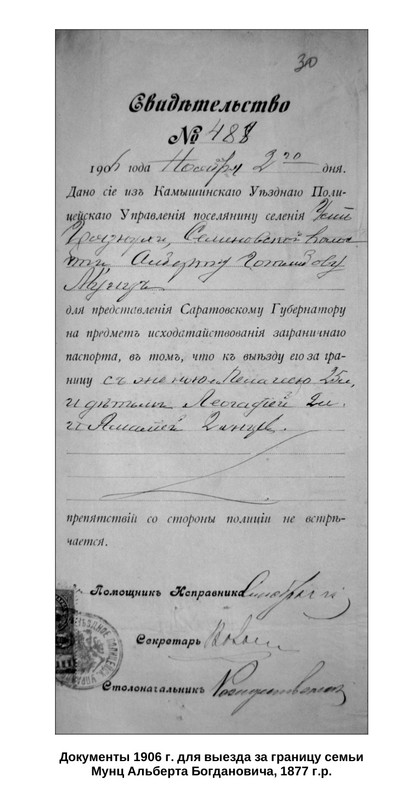 30
Свидѣтельство
№ 488
1906 года Ноября 2го дня.
Дано сіе изъ Камышинскаго Уѣзднаго Поли-
цейскаго Управленія поселянину селенія Усть
Грязнухи, Семеновской волос
ти Альберту
Мунцъ
для представленія Саратовскому Губернатору
на предметъ исходатайствованія заграничнаго
паспорта, въ томъ, что къ выѣзду его за гра-
ницу съ женою 25л,
и дѣтьми 2л.
и Амалией 2
препятствій со стороны полиціи не встрѣ-
чается.
Помощникъ Исправника
Секретарь
Столоначальникъ Рождественскій
Документы 1906 г. для выезда за границу семьи
Мунц Альберта Богдановича, 1877 г.р.